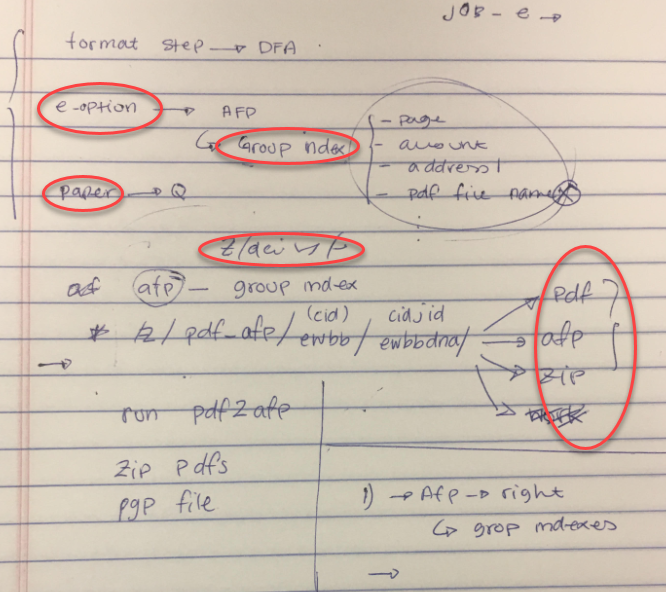 JOB - e →
format step → DFA
e-option → AFP
↳ Group index
- page
- account
- address1
- pdf file name
paper → Q
afp — group index
(cid) cidjid
/z/ pdf_afp/ ewbb/ ewbbdna/
pdf
afp
zip
→
run pdf2afp
zip pdfs
pgp file
1) → Afp → right
↳ grop indexes
→